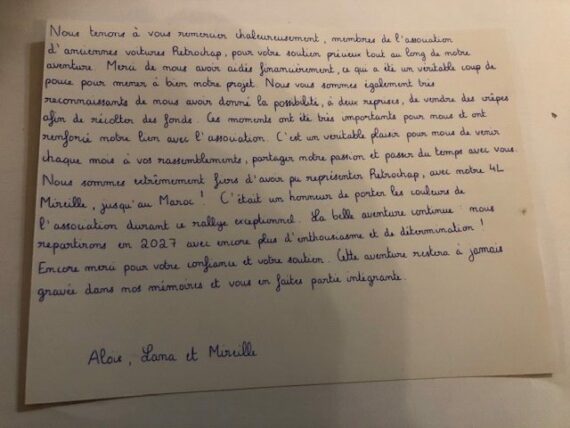 Nous tenons à vous remercier chaleureusement, membres de l'association
d'anciennes voitures Retrochap, pour votre soutien précieux tout au long de notre
aventure. Merci de nous avoir aidés financièrement, ce qui a été un véritable coup de
pouce pour mener à bien notre projet. Nous vous sommes également très
reconnaissants de nous avoir donné la possibilité, à deux reprises, de vendre des crêpes
afin de récolter des fonds. Ces moments ont été très importants pour nous et ont
renforcé notre lien avec l'association. C'est un véritable plaisir pour nous de venir
chaque mois à vos rassemblements, partager notre passion et passer du temps avec vous.
Nous sommes extrêmement fiers d'avoir pu représenter Retrochap, avec notre 4L
Mireille, jusqu'au Maroc ! C'était un honneur de porter les couleurs de
l'association durant ce rallye exceptionnel. La belle aventure continue : nous
repartirons en 2027 avec encore plus d'enthousiasme et de détermination !
Encore merci pour votre confiance et votre soutien. Cette aventure restera à jamais
gravée dans nos mémoires et vous en faites partie intégrante.
Aloïs, Lana et Mireille